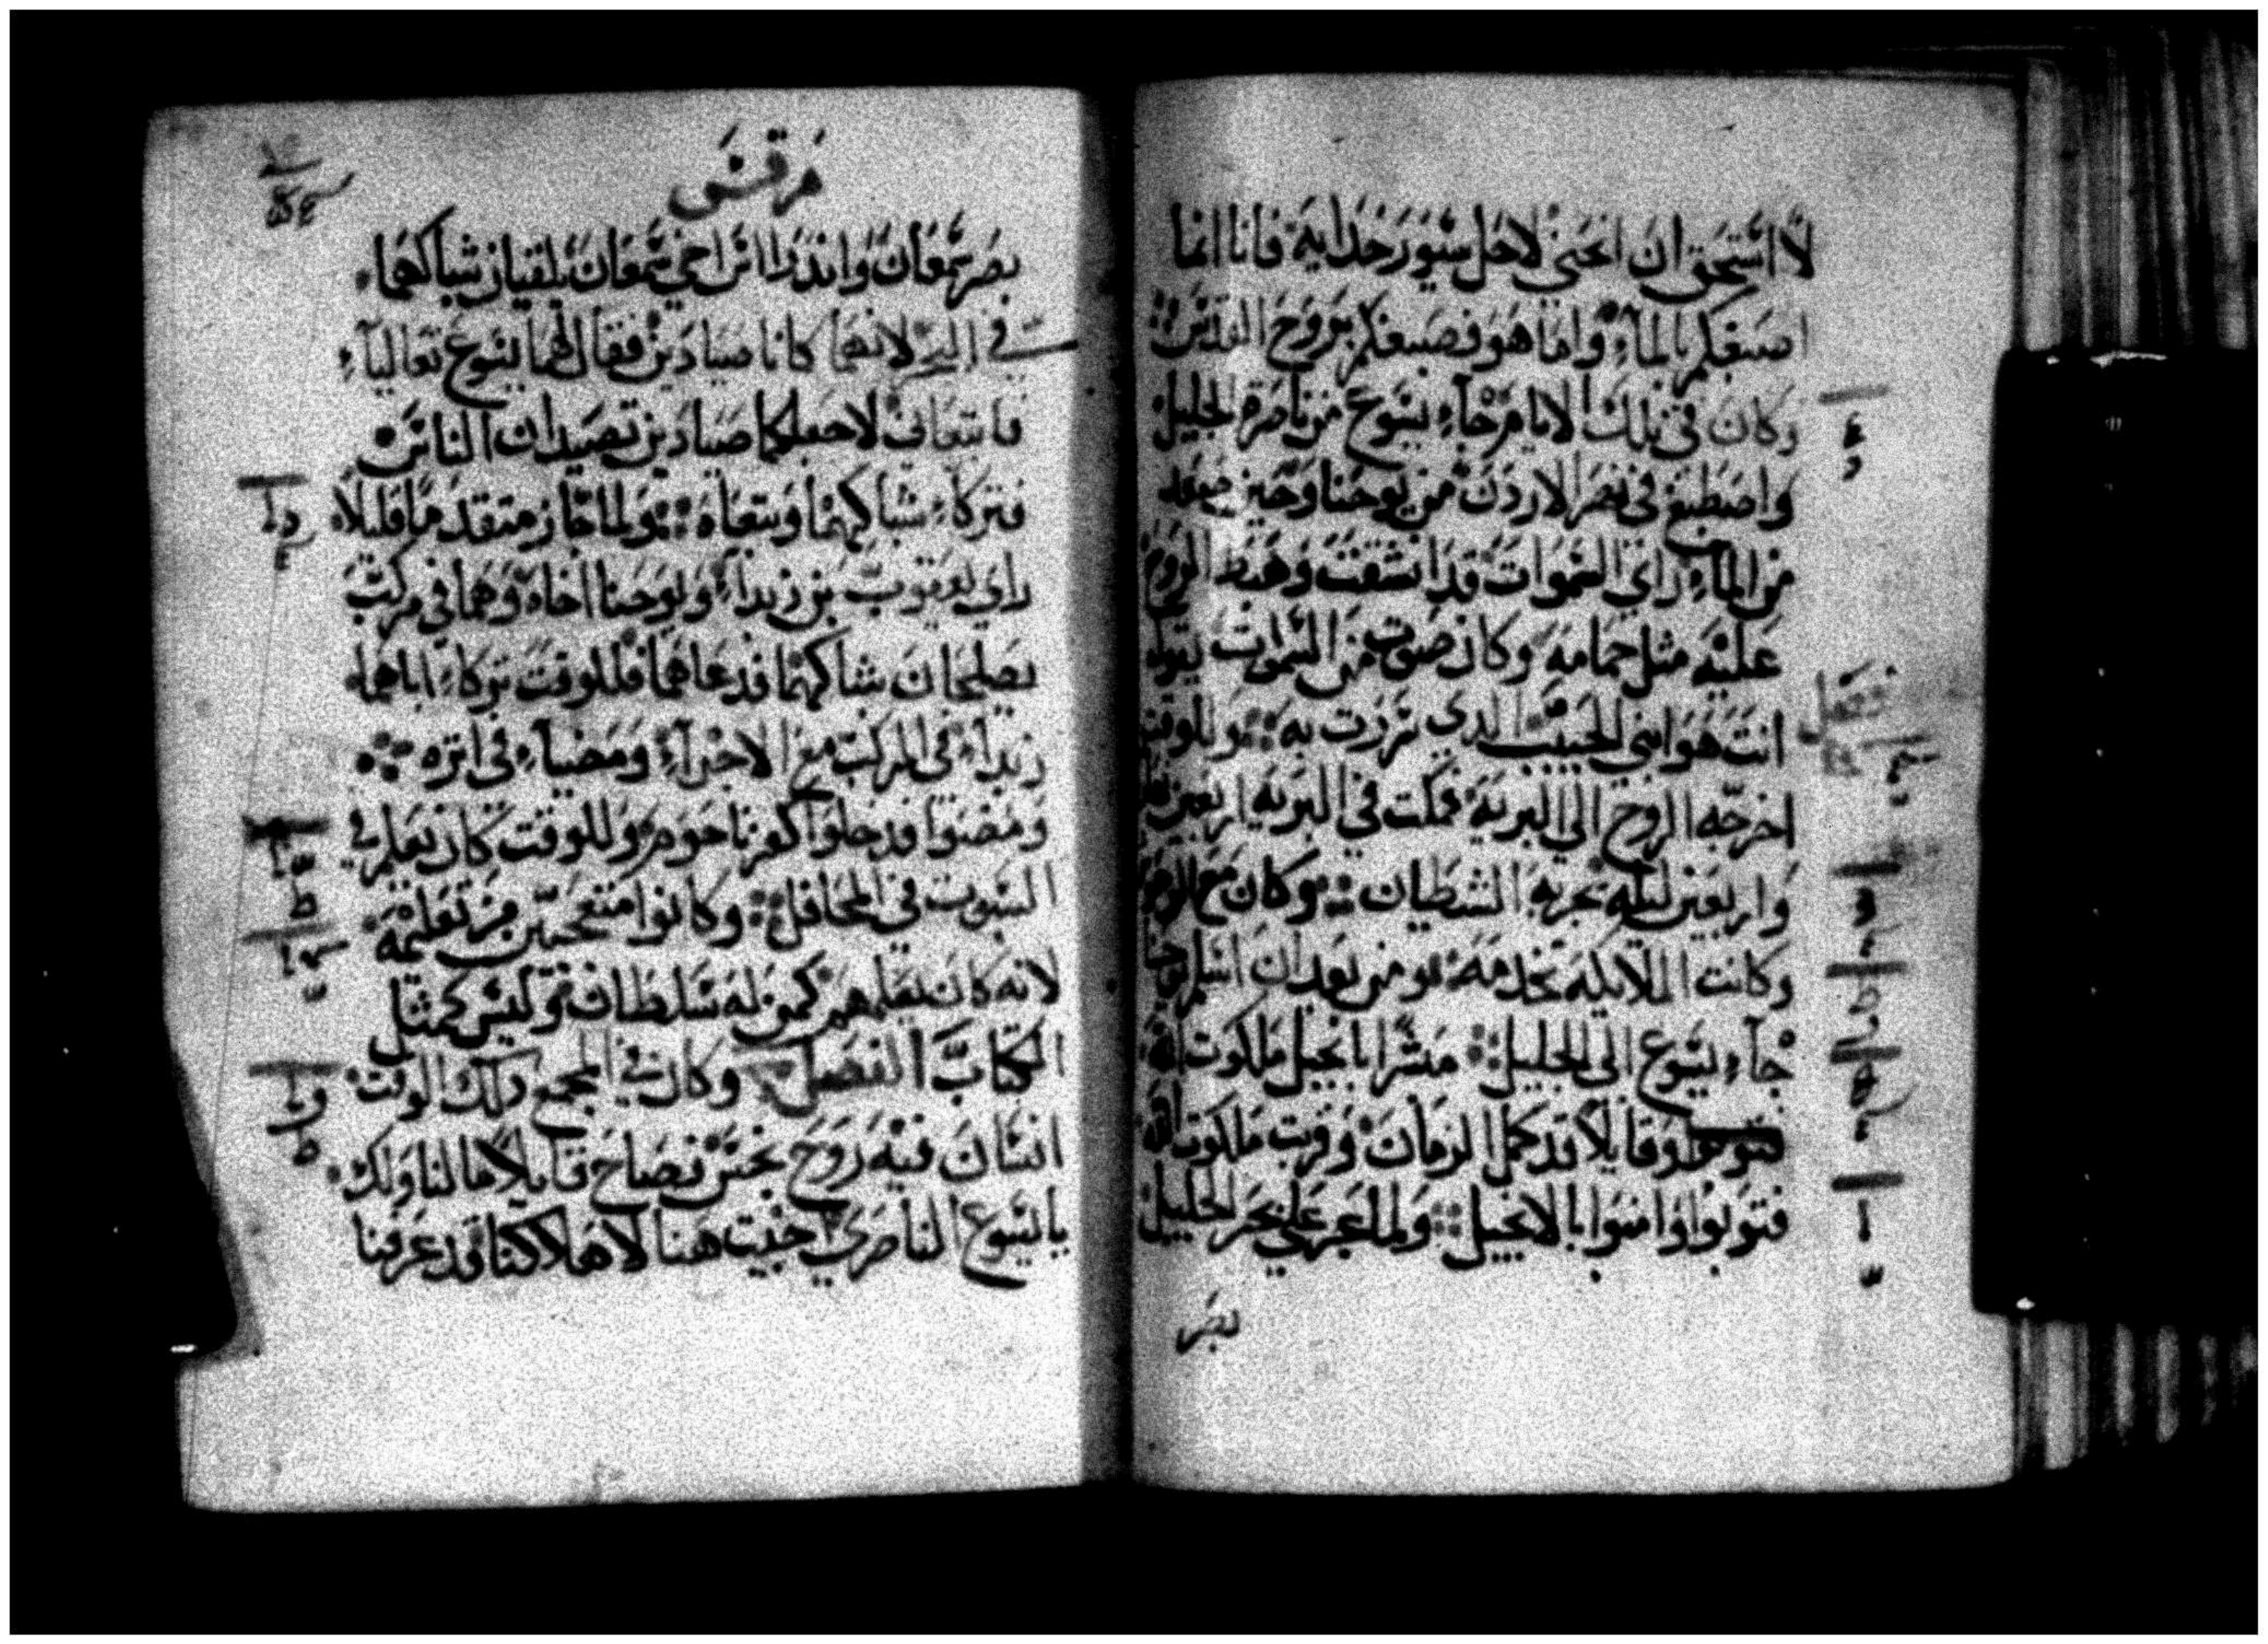 لا استحق ان انحني لاحل سيور حدايه فانا انما
اصبغكم بالماء واما هو فيصبغكم بروح القدس
وكان في تلك الايام جاء يسوع من ناصرة الجليل
واصطبغ في نهر الاردن من يوحنا وحين صعد
من الماء راي السموات قد انشقت وهبط الروح
عليه مثل حمامه وكان صوت من السموات يقول
انت هو ابني الحبيب الدي سررت به وللوقت
اخرجه الروح الي البريه فمكت في البريه اربعين
واربعين ليله تجربه الشطيان وكان مع
وكانت الملايكه تخدمه ومن بعد ان اسلم يوحنا
جاء يسوع الى الجليل مبشرا بانجيل ملكوت الله
وقايلا قد كمل الزمان وقربت ملكوت الله
فتوبوا وامنوا بالانجيل ولما عبر علي بحر الجليل
بصر
مرقس
بصر سمعان واندراس اخي سمعان يلقيان شباكهما
في البحر لانهما كانا صيادين فقال لهما يسوع تعاليا
فاتبعاني لاجعلكما صيادين تصيدان الناس
فتركا شباكهما وتبعاه ولما جاز متقدما قليلا
راي يعقوب بن زبدا ويوحنا اخاه وهما في مركب
يصلحان شباكهما فدعاهما فللوقت تركا اباهما
زبدا في المركب مع الاجرآء ومضيا في اتره
ومضوا فدخلوا كفرناحوم وللوقت كان يعلم في
السبوت في المحافل وكانوا متعجبين من تعليمه
لانه كان يعلمهم كمن له سلطان وليس كمثل
الكتاب الفصل وكان في المجمع دلك الوقت
انسان فيه روح نجس فصاح قايلا ما لنا ولك
يا يسوع الناصري اجيت هنا لاهلاكنا قد عرفنا